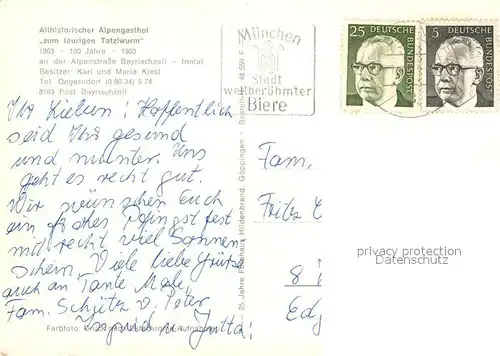 Althistorischer Alpengasthof
„zum feurigen Tatzlwurm"
1863 - 100 Jahre - 1963
an der Alpenstraße Bayrischzell - Inntal
Besitzer: Karl und Maria Kiesl
Tel. Degerndorf (0 80 34) 5 74
8163 Post Bayrischzell
München
Stadt
weltberühmter
Biere
25 DEUTSCHE BUNDESPOST
5 DEUTSCHE BUNDESPOST
Ihr Lieben! Hoffentlich
seid Ihr gesund
und munter. Uns
geht es recht gut.
Wir wünschen Euch
ein frohes Pfingstfest
mit recht viel Sonnen
schein. Viele liebe Grüße
auch an Tante Male
Fam. Schütz v. Peter
Ingrid u. Jutta!
Fam.
Fritz
8
privacy protection
Datenschutz
25 Jahre Fotohaus Hildenbrand, Göppingen
Farbfoto: